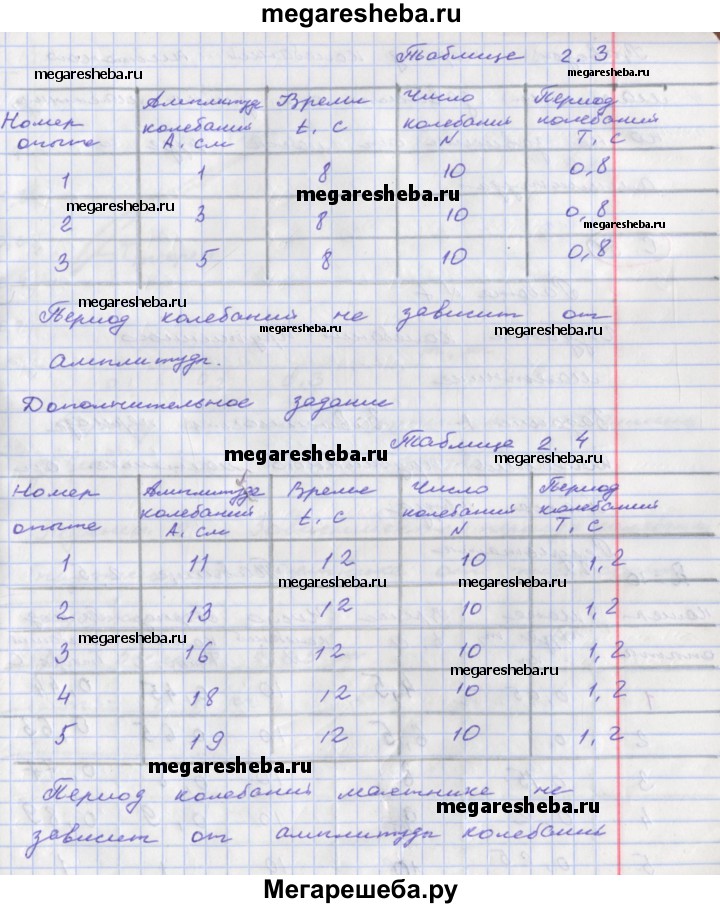 megaresheba.ru
Таблица 2.3
megaresheba.ru
megaresheba.ru
Номер опыта | Амплитуда колебаний А, см | Время t, с | Число колебаний N | Период колебаний Т, с
1 | 1 | 8 | 10 | 0,8
megaresheba.ru
megaresheba.ru
2 | 3 | 8 | 10 | 0,8
megaresheba.ru
3 | 5 | 8 | 10 | 0,8
megaresheba.ru
Период колебаний не зависит от
megaresheba.ru
megaresheba.ru
амплитуды.
Дополнительное задание
Таблица 2.4
megaresheba.ru
megaresheba.ru
Номер опыта | Амплитуда колебаний А, см | Время t, с | Число колебаний N | Период колебаний Т, с
1 | 11 | 12 | 10 | 1,2
megaresheba.ru
megaresheba.ru
2 | 13 | 12 | 10 | 1,2
megaresheba.ru
3 | 16 | 12 | 10 | 1,2
megaresheba.ru
4 | 18 | 12 | 10 | 1,2
5 | 19 | 12 | 10 | 1,2
megaresheba.ru
Период колебаний маятника не
megaresheba.ru
зависит от амплитуды колебаний
Мегарешеба.ру